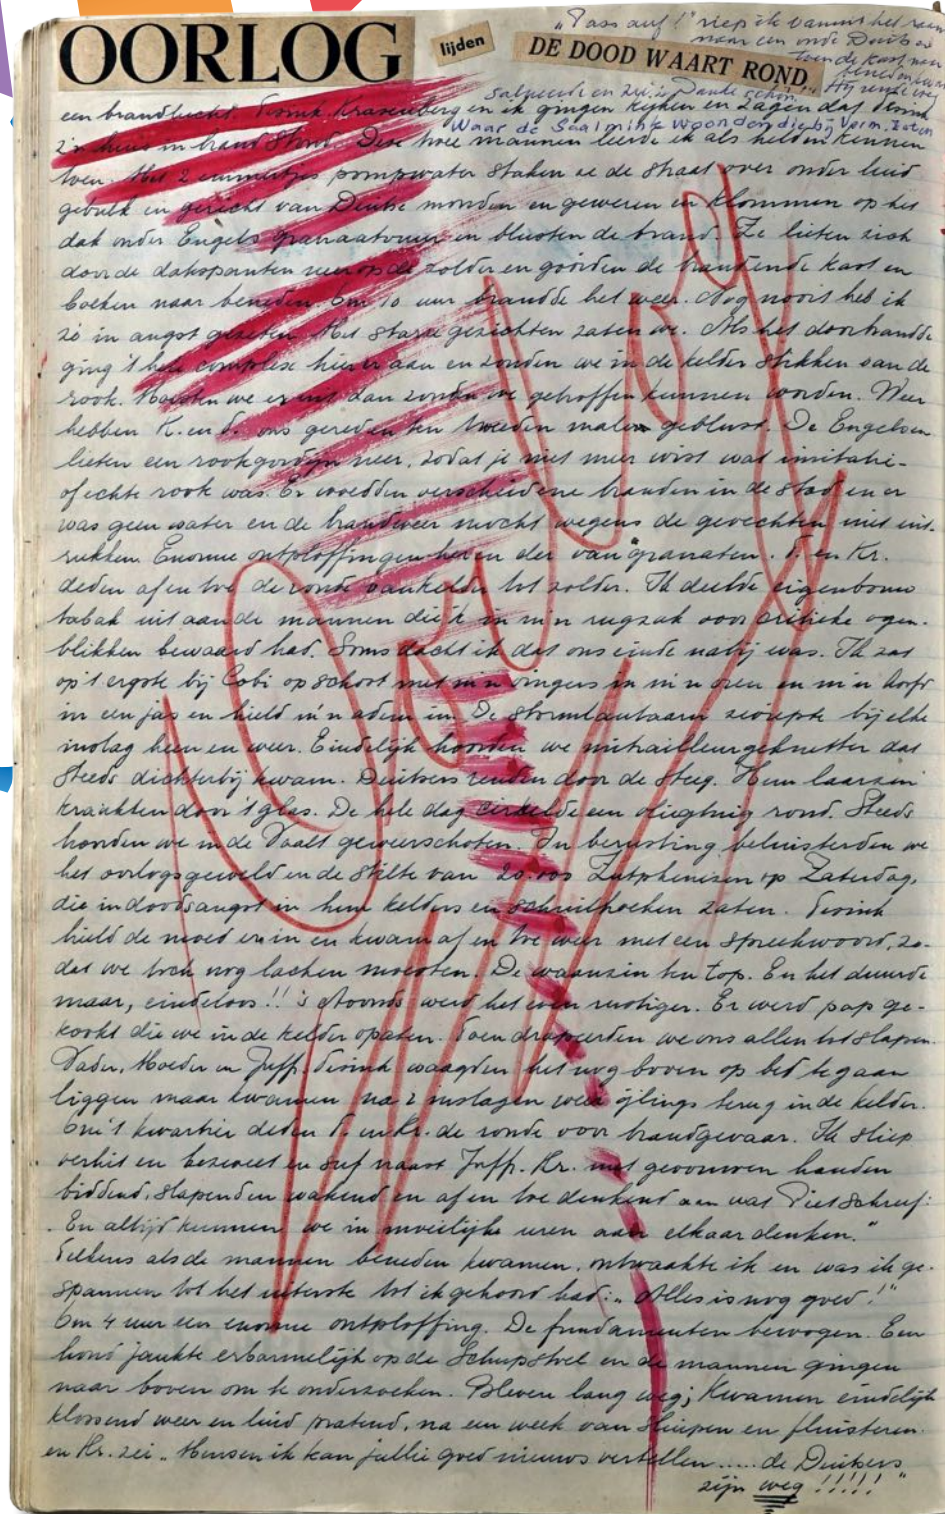 "Pass auf!" riep ik vanuit het raam
naar een oude Duitser
toen de kast naar
beneden kwam
Hij
salueerde en zei: "Danke schön."
OORLOG
lijden
DE DOOD WAART ROND
een brandlucht. Tesink, Krasenberg en ik gingen kijken en zagen dat Tesink
Waar de Saalmink woonden die bij Verm. zaten
z'n huis in brand stond. Deze twee mannen leerde ik als helden kennen
toen. Met 2 emmertjes pompwater staken ze de straat over onder luid
gebulk in gezicht van Duitse monden en geweren en klommen op het
dak onder Engels granaatvuur en blusten de brand. Ze lieten zich
door de dakspanten neer op de zolder en gooiden de brandende kast en
boeken naar beneden. Om 10 uur brandde het weer. Nog nooit heb ik
zó in angst gezeten. Met starre gezichten zaten we. Als het doorbrandde
ging 't hele complex hier er aan en zouden we in de kelder stikken van de
rook. Moesten we eruit dan zouden we getroffen kunnen worden. Weer
hebben K. en T. ons gered en ten tweeden male geblust. De Engelsen
lieten een rookgordijn neer, zodat je niet meer wist wat imitatie-
of echte rook was. Er woedden verscheidene branden in de stad en er
was geen water en de brandweer mocht wegens de gevechten niet uit-
rukken. Enorme ontploffingen her en der van granaten. T. en Kr.
deden af en toe de ronde van kelder tot zolder. Ik deelde eigenbouw
tabak uit aan de mannen die ik in m'n rugzak voor critieke ogen-
blikken bewaard had. Soms dacht ik dat ons einde nabij was. Ik zat
op 't ergste bij Cobi op schoot met m'n vingers in m'n oren en m'n hoofd
in een jas en hield m'n adem in. De stormlantaarn zwiepte bij elke
inslag heen en weer. Eindelijk hoorden we mitrailleurgeknetter dat
steeds dichterbij kwam. Duitsers renden door de steeg. Hun laarzen
kraakten door 't glas. De hele dag cirkelde een vliegtuig rond. Steeds
hoorden we in de Vaalt geweerschoten. In berusting beluisterden we
het oorlogsgeweld en de stilte van 20.000 Zutphenizen op Zaterdag,
die in doodsangst in hun kelders en schuilhoeken zaten. Tesink
hield de moed erin en kwam af en toe weer met een spreekwoord, zo-
dat we toch nog lachen moesten. De waanzin ten top. En het duurde
maar, eindeloos!! 's Avonds werd het even rustiger. Er werd pap ge-
kookt die we in de kelder opaten. Toen drapeerden we ons allen tot slapen.
Vader, Moeder en Juff. Tesink waagden het nog boven op bed te gaan
liggen maar kwamen na 2 inslagen weer ijlings terug in de kelder.
Om 't kwartier deden T. en Kr. de ronde voor brandgevaar. Ik sliep
verhit en bezweet en suf naast Juff. Kr. met gevouwen handen
biddend, slapend en wakend en af en toe denkend aan wat Piet schreef:
"En altijd kunnen we in moeilijke uren aan elkaar denken."
Telkens als de mannen beneden kwamen, ontwaakte ik en was ik ge-
spannen tot het uiterste tot ik gehoord had: "Alles is nog goed!"
Om 4 uur een enorme ontploffing. De fundamenten bewogen. Een
hond jankte erbarmelijk op de Schupstoel en de mannen gingen
naar boven om te onderzoeken. Bleven lang weg; Kwamen eindelijk
klossend weer en luid pratend, na een week van sluipen en fluisteren.
en Kr. zei "Mensen ik kan jullie goed nieuws vertellen ..... de Duitsers
zijn weg !!!!!"